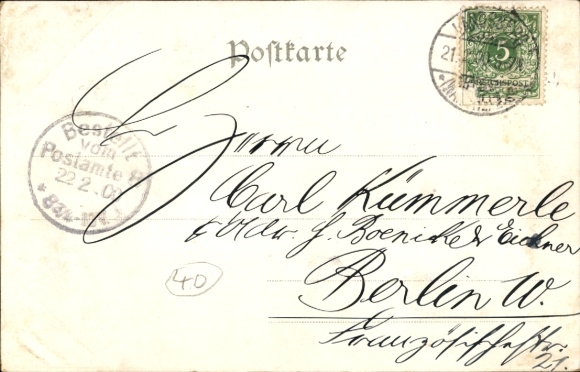 Postkarte
5
REICHSPOST
21.
Bestellt
vom
Postamte 8
22.2.00
8¾-
Herrn
Carl Kümmerle
Adr. H. Boenicke & Eichner
Berlin W.
Französischestr.
21.
40